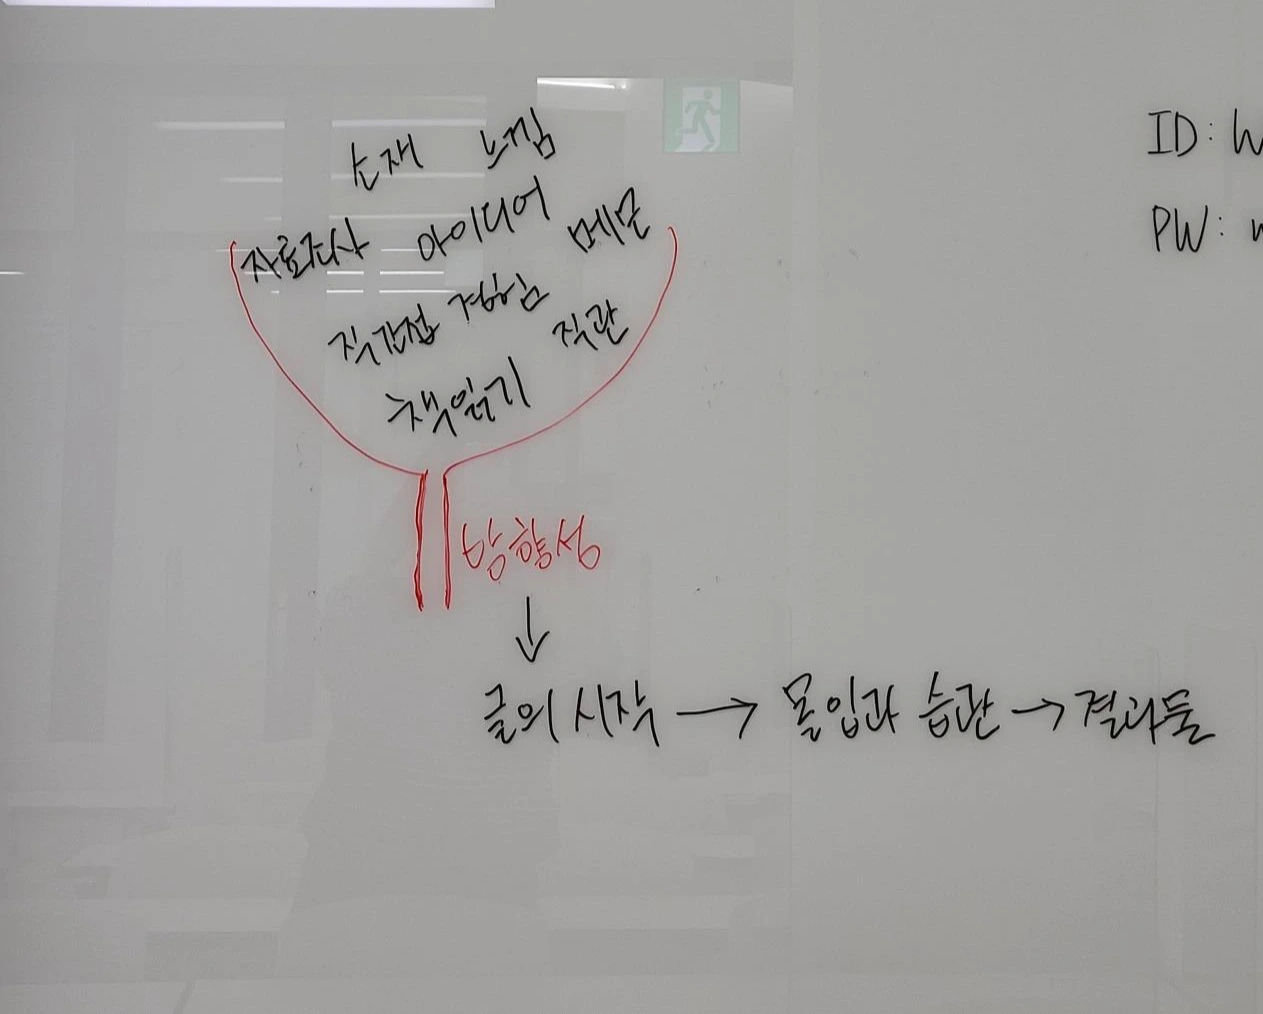 소재 느낌
자료조사 아이디어 메모
직간접 경험 직관
책읽기
방향성
↓
글의 시작 → 몰입과 습관 → 결과둘
ID:
PW: